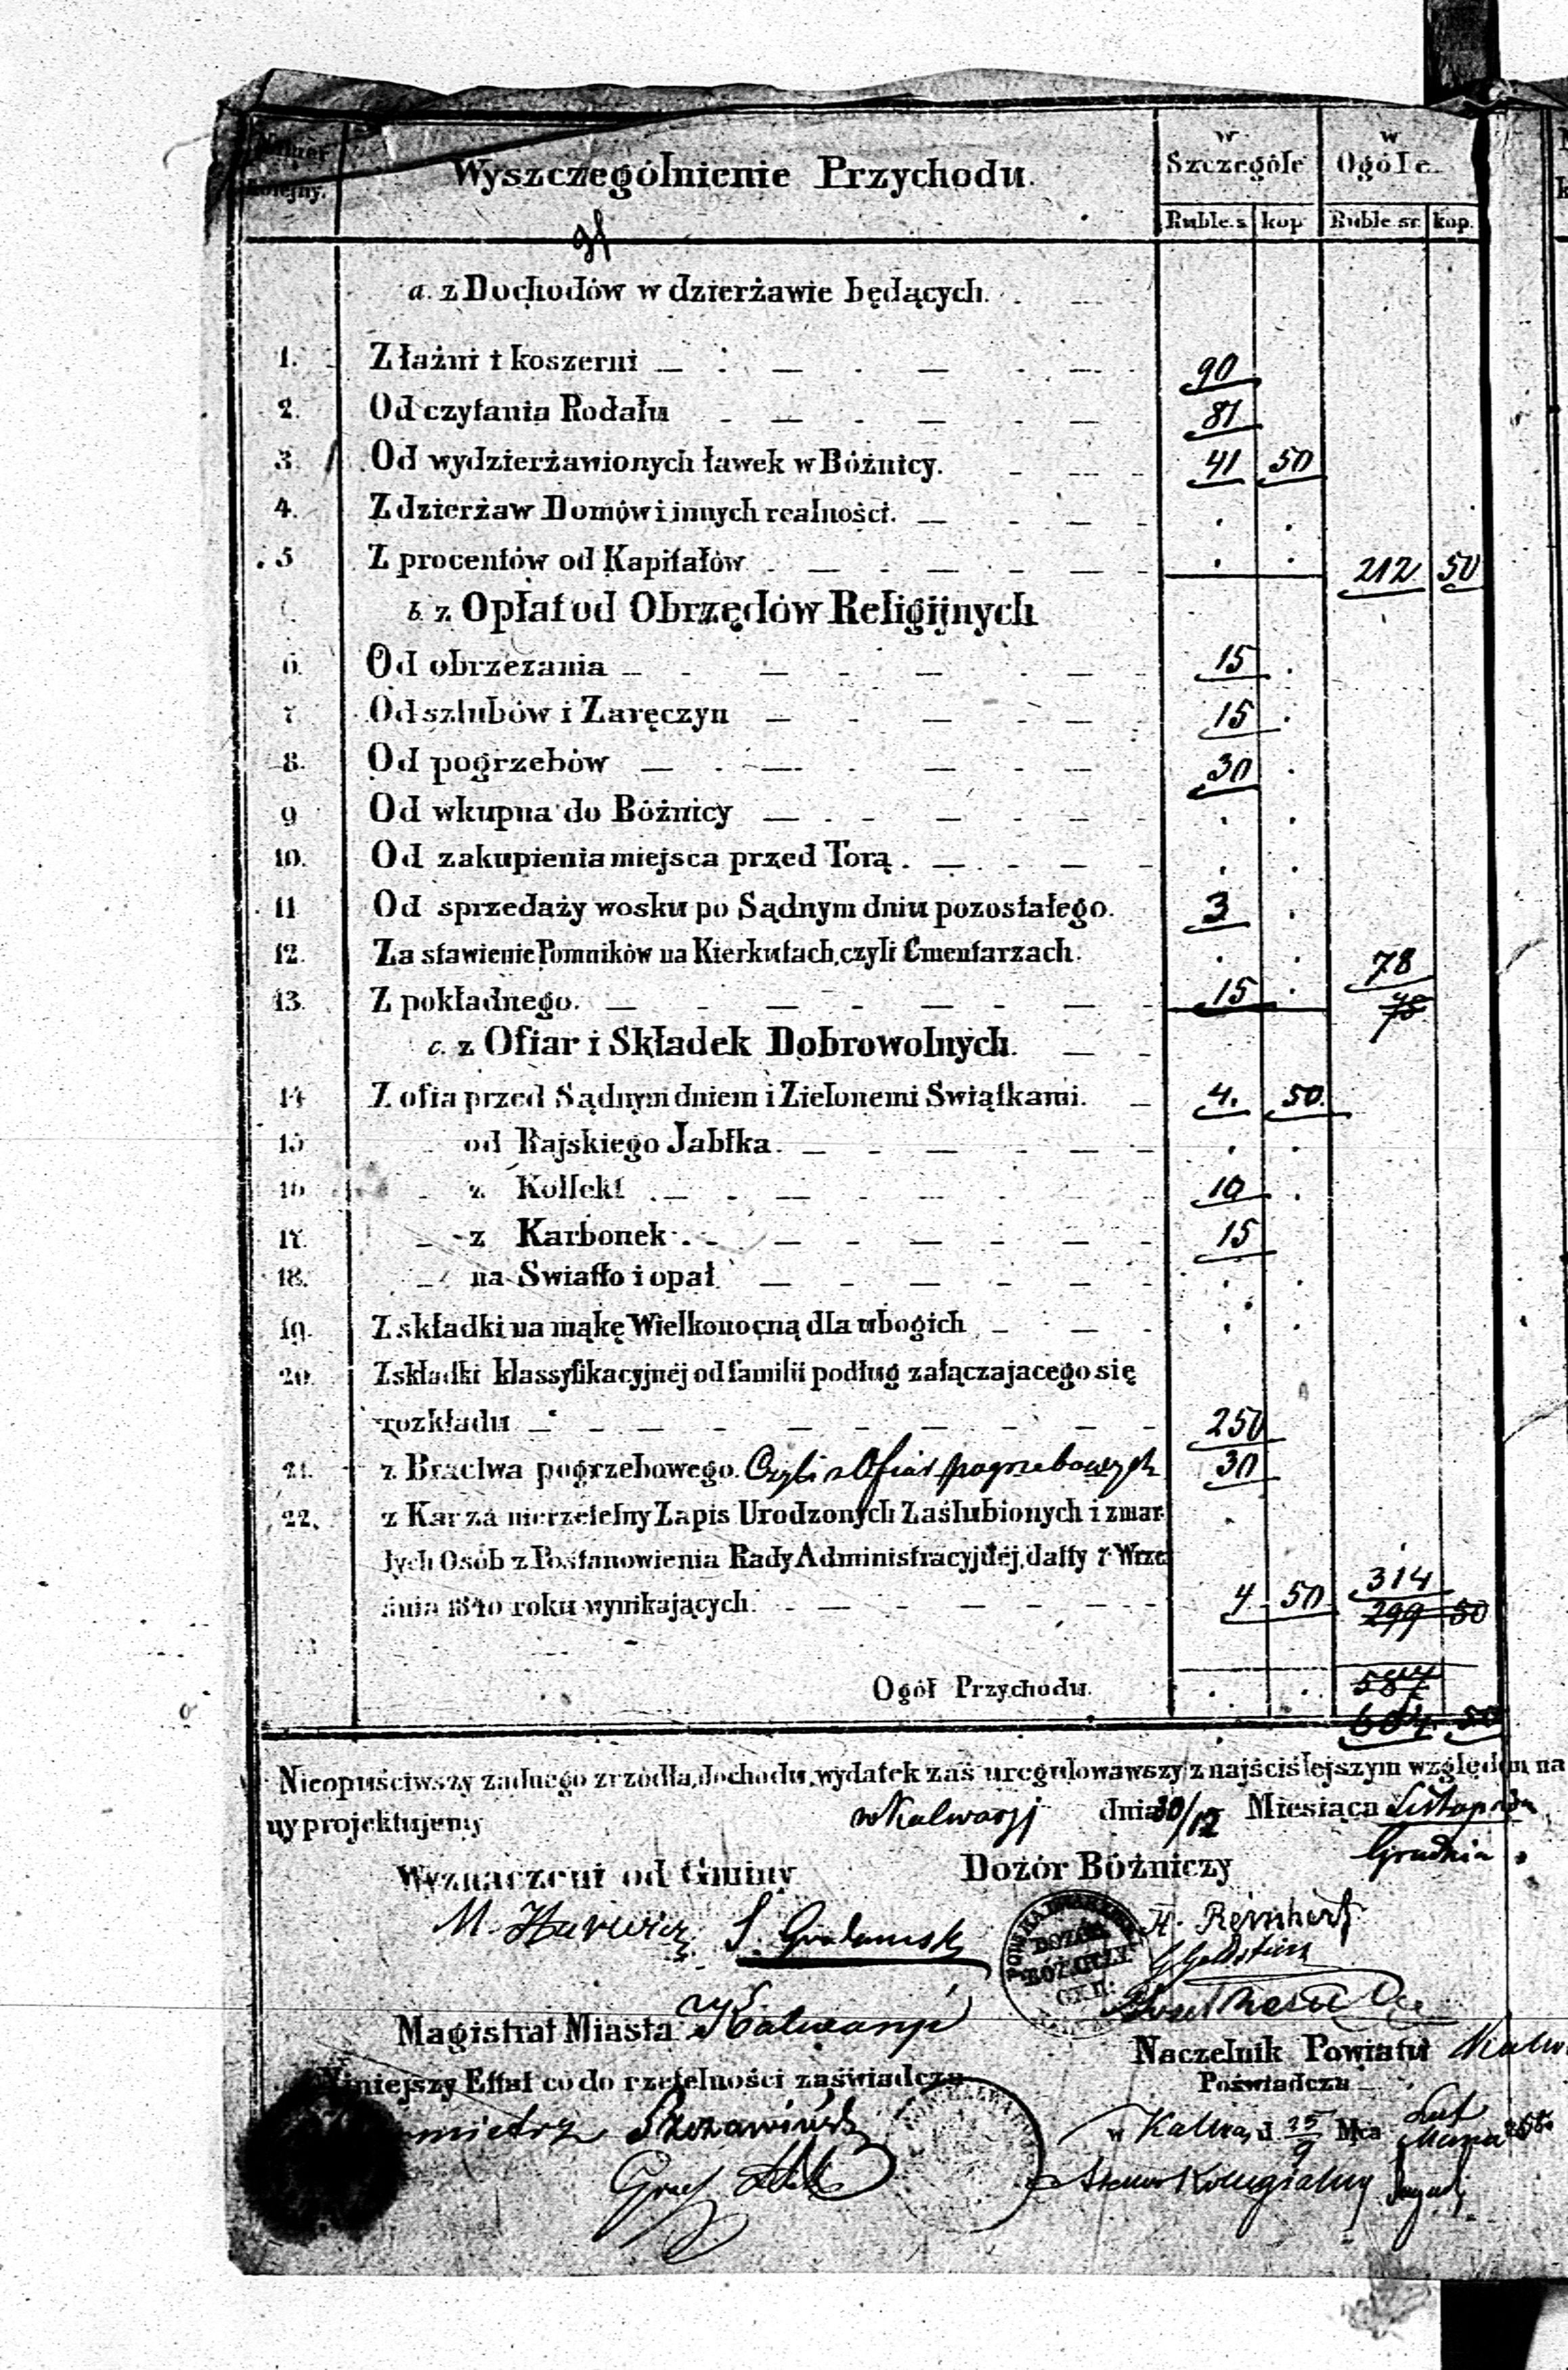 Numer kolejny. Wyszczególnienie Przychodu. w Szczególe w Ogóle.
Ruble s. kop Ruble sr. kop.
a. z Dochodów w dzierżawie będących.
1. Z łaźni i koszerni 90
2. Od czytania Rodału 81
3. Od wydzierżawionych ławek w Bóżnicy. 41 50
4. Z dzierżaw Domów i innych realności.
5 Z procentów od Kapitałów 212 50
b. z Opłat od Obrzędów Religijnych
6. Od obrzezania 15
7 Od szlubów i Zaręczyn 15
8. Od pogrzebów 30
9 Od wkupna do Bóżnicy
10. Od zakupienia miejsca przed Torą.
11 Od sprzedaży wosku po Sądnym dniu pozostałego. 3
12. Za stawienie Pomników na Kierkutach, czyli Cmentarzach. 78
13. Z pokładnego. 15 78
c. z Ofiar i Składek Dobrowolnych.
14 Z ofia przed Sądnym dniem i Zielonemi Swiątkami. 4. 50.
15 od Rajskiego Jabłka.
16 z Kollekt 10
17. z Karbonek 15
18. na Swiatło i opał
19. Z składki na mąkę Wielkonocną dla ubogich
20. Z składki klassyfikacyjnéj od familii podług załączajacego się
rozkładu 250
21. z Bractwa pogrzebowego. Czyli z Ofiar pogrzebowych 30
22. z Kar za nierzetelny Zapis Urodzonych Zaślubionych i zmar
łych Osób z Postanowienia Rady Administracyjnéj, datty 7 Wrze 314
śnia 1840 roku wynikających. 4 50 299 50
Ogół Przychodu. 587
604 50
Nieopuściwszy żadnego zrzódła, dochodu, wydatek zaś uregulowawszy z najściślejszym względem na
ny projektujemy w Kalwaryi dnia 30/12 Miesiąca Listopada
Grudnia
Wyznaczeni od Gminy Dozór Bóżniczy
M. Hurwicz S. H. Reinhert
DOZÓR BÓŻNICZY G Goldstein
Magistrat Miasta Kalwaryi
Naczelnik Powiatu
Niniejszy Ettat co do rzetelności zaświadcza Poświadcza
w d. 25/9 Mca